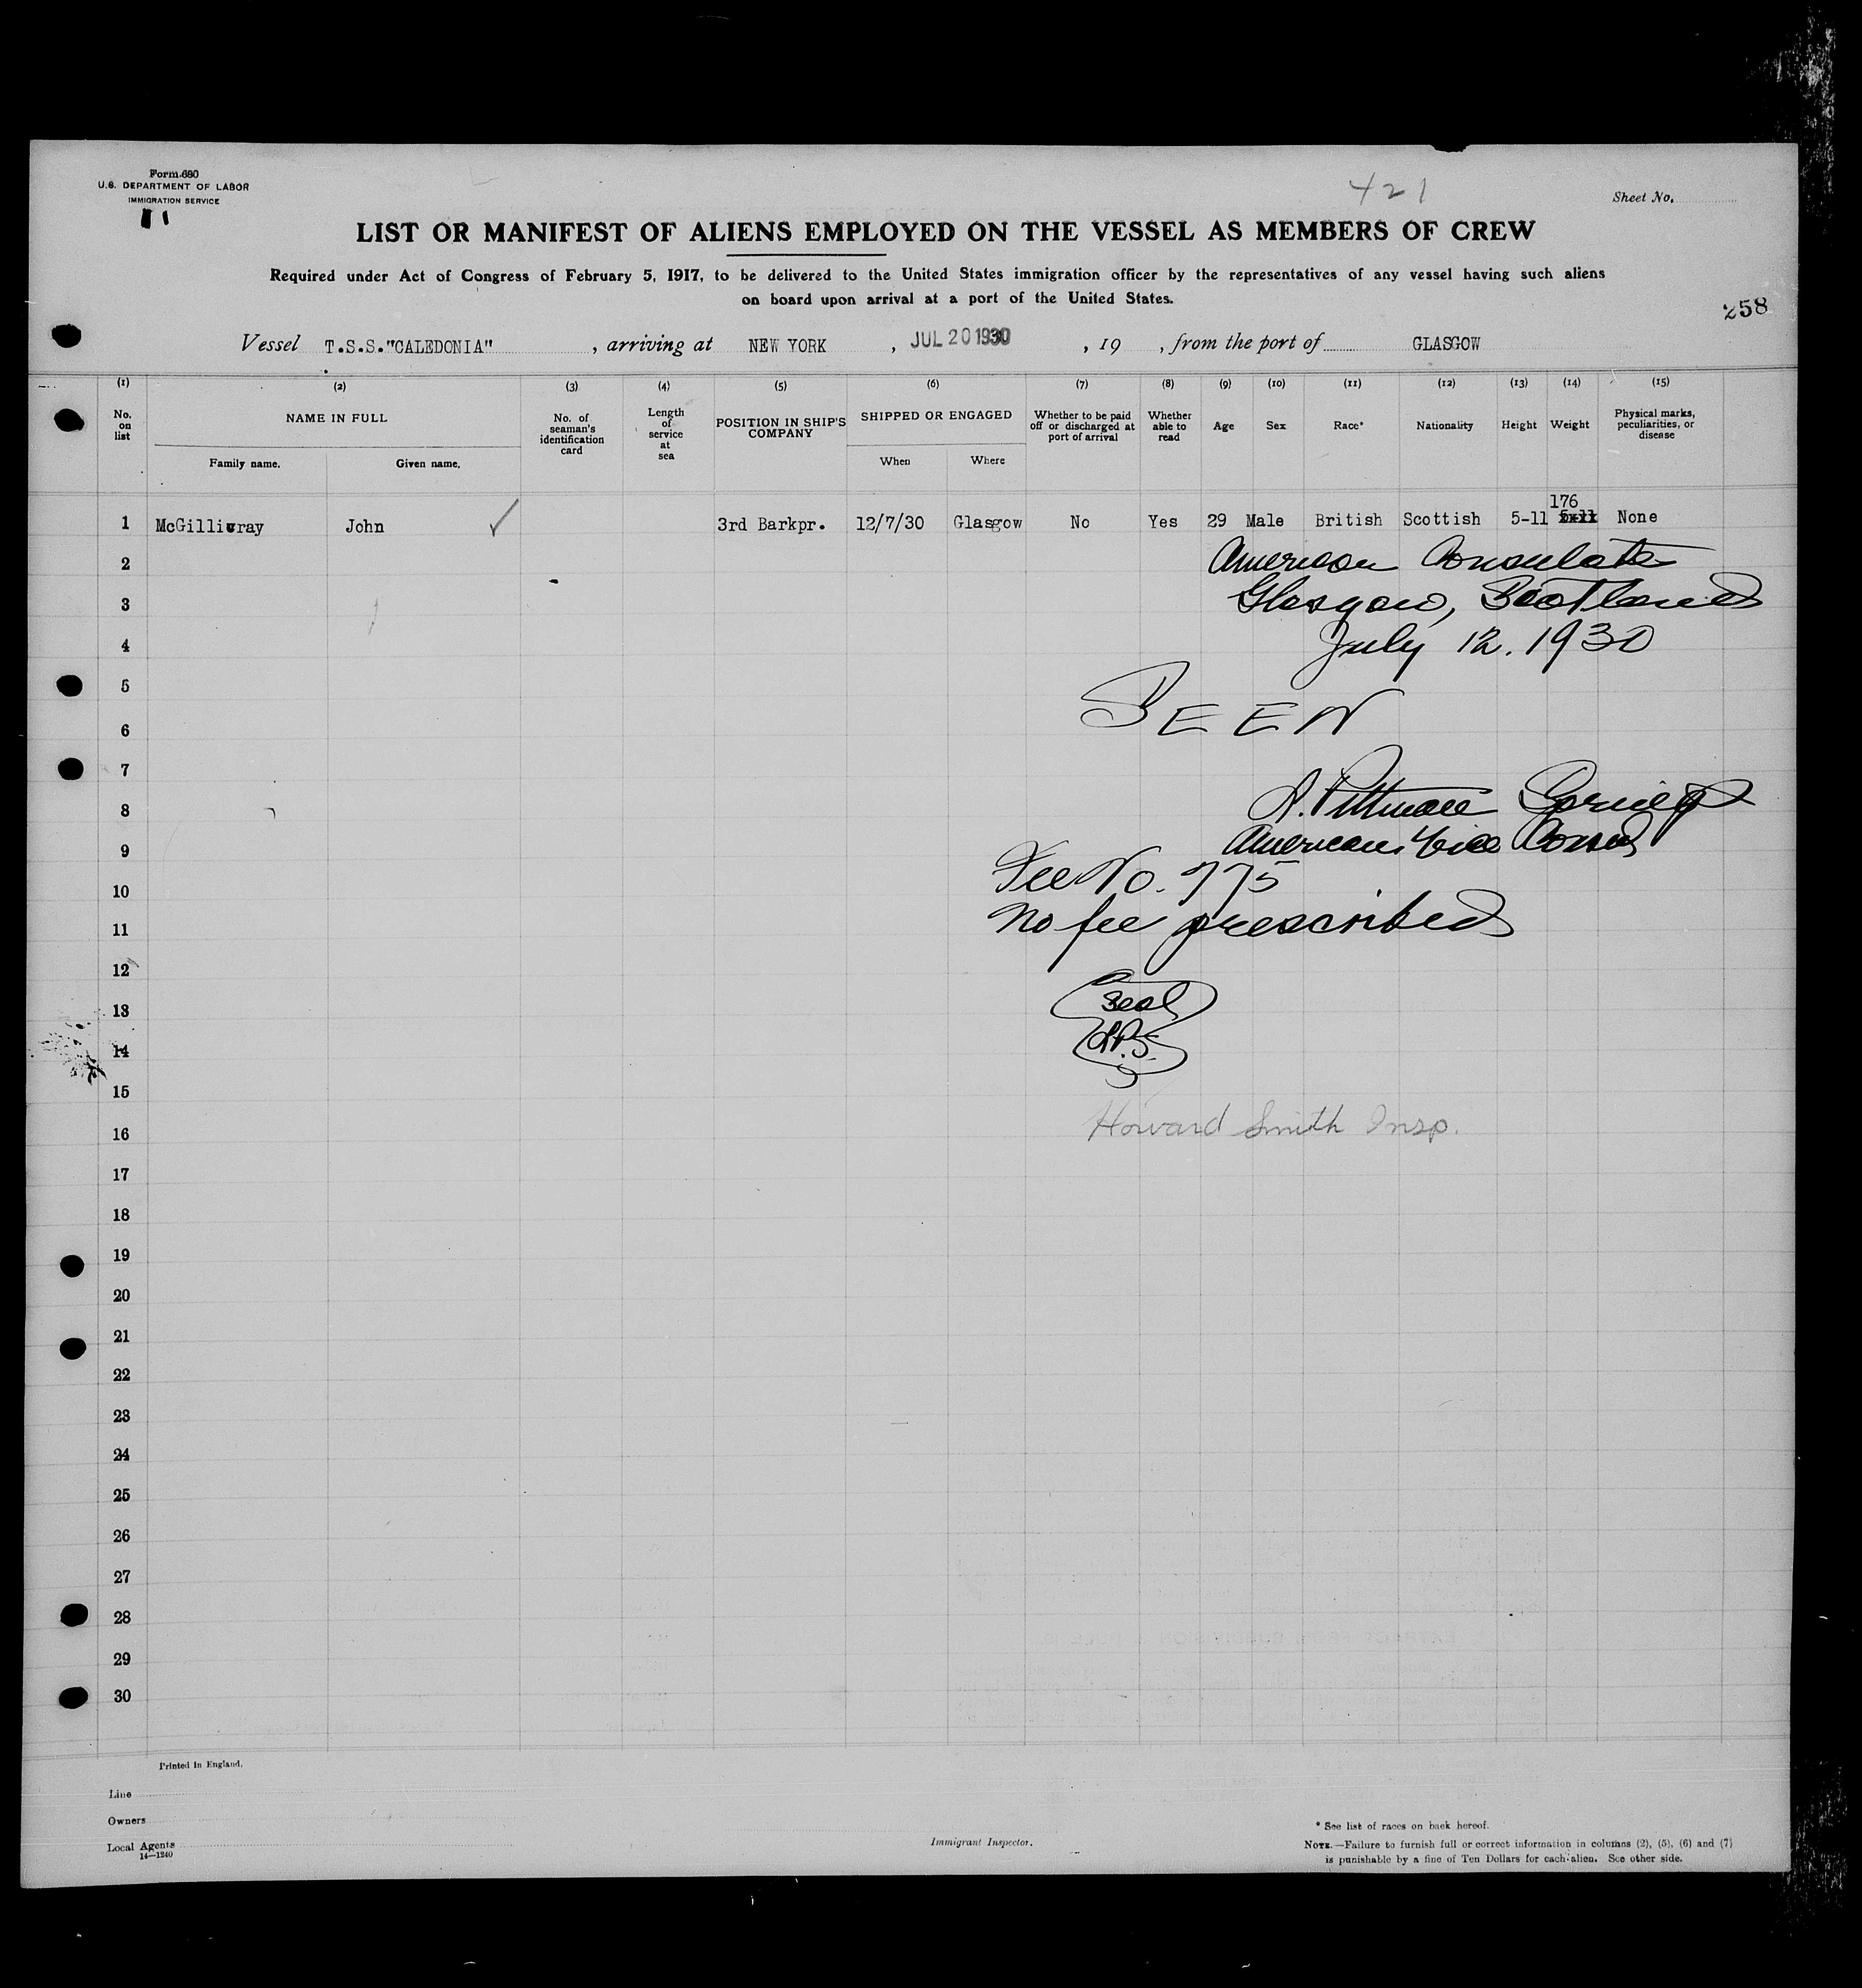 Form 680
U.S. DEPARTMENT OF LABOR
IMMIGRATION SERVICE
421
Sheet No.
LIST OR MANIFEST OF ALIENS EMPLOYED ON THE VESSEL AS MEMBERS OF CREW
Required under Act of Congress of February 5, 1917, to be delivered to the United States immigration officer by the representatives of any vessel having such aliens
on board upon arrival at a port of the United States.
258
Vessel T.S.S."CALEDONIA" , arriving at NEW YORK , JUL 20 1930 , 19 , from the port of GLASGOW
(1) (2) (3) (4) (5) (6) (7) (8) (9) (10) (11) (12) (13) (14) (15)
No. on list
NAME IN FULL
Family name. Given name.
No. of seaman's identification card
Length of service at sea
POSITION IN SHIP'S COMPANY
SHIPPED OR ENGAGED
When Where
Whether to be paid off or discharged at port of arrival
Whether able to read
Age
Sex
Race*
Nationality
Height
Weight
Physical marks, peculiarities, or disease
176
1 McGillivray John ✓ 3rd Barkpr. 12/7/30 Glasgow No Yes 29 Male British Scottish 5-11 5-11 None
2 American Consulate
3 Glasgow, Scotland
4 July 12. 1930
5
6 SEEN
7
8 Pittman
9 American Vice Consul
10 Fee No. 775
11 No fee prescribed
12
13 Seal
14
15
16 Howard Smith Insp.
17
18
19
20
21
22
23
24
25
26
27
28
29
30
Printed in England.
Line
Owners
Local Agents
14—1240
Immigrant Inspector.
* See list of races on back hereof.
NOTE.—Failure to furnish full or correct information in columns (2), (5), (6) and (7)
is punishable by a fine of Ten Dollars for each alien. See other side.